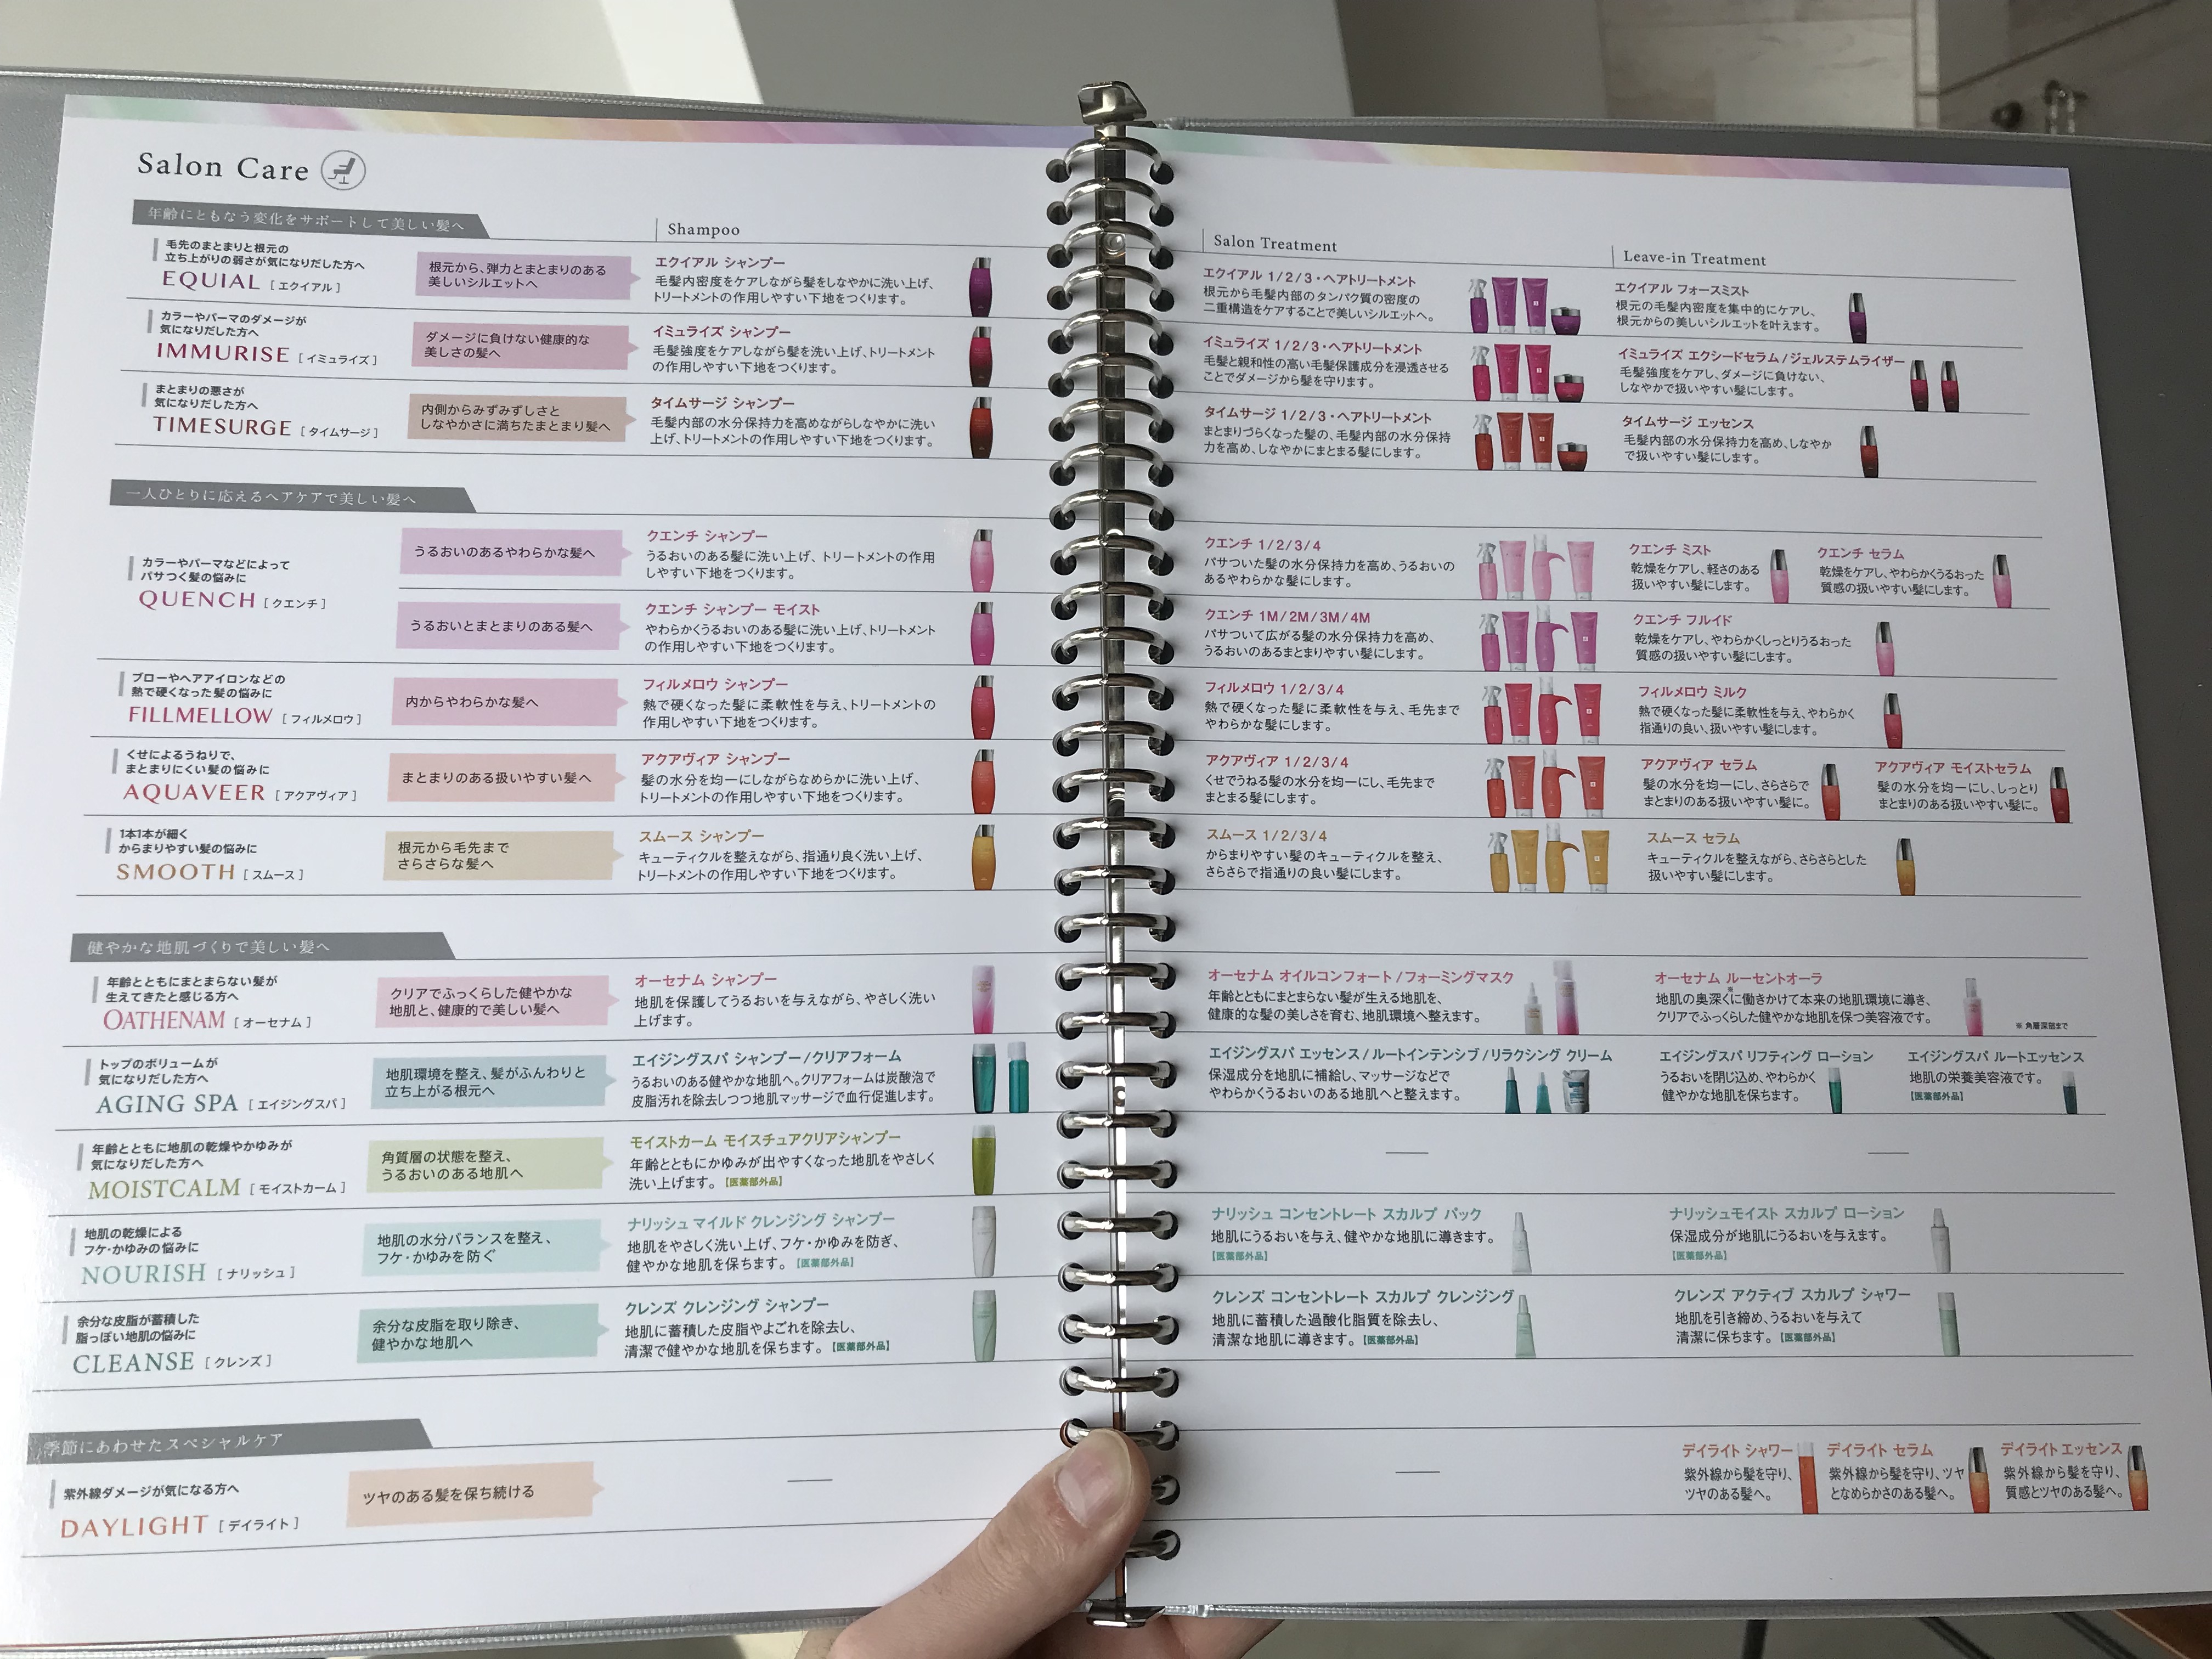 Salon Care
年齢にともなう変化をサポートして美しい髪へ
Shampoo
Salon Treatment
Leave-in Treatment
毛先のまとまりと根元の
立ち上がりの弱さが気になりだした方へ
EQUIAL [エクイアル]
根元から、弾力とまとまりのある
美しいシルエットへ
エクイアル シャンプー
毛髪内密度をケアしながら髪をしなやかに洗い上げ、
トリートメントの作用しやすい下地をつくります。
エクイアル 1/2/3・ヘアトリートメント
根元から毛髪内部のタンパク質の密度の
二重構造をケアすることで美しいシルエットへ。
エクイアル フォースミスト
根元の毛髪内密度を集中的にケアし、
根元からの美しいシルエットを叶えます。
カラーやパーマのダメージが
気になりだした方へ
IMMURISE [イミュライズ]
ダメージに負けない健康的な
美しさの髪へ
イミュライズ シャンプー
毛髪強度をケアしながら髪を洗い上げ、トリートメント
の作用しやすい下地をつくります。
イミュライズ 1/2/3・ヘアトリートメント
毛髪と親和性の高い毛髪保護成分を浸透させる
ことでダメージから髪を守ります。
イミュライズ エクシードセラム/ジェルステムライザー
毛髪強度をケアし、ダメージに負けない、
しなやかで扱いやすい髪にします。
まとまりの悪さが
気になりだした方へ
TIMESURGE [タイムサージ]
内側からみずみずしさと
しなやかさに満ちたまとまり髪へ
タイムサージ シャンプー
毛髪内部の水分保持力を高めながらしなやかに洗い
上げ、トリートメントの作用しやすい下地をつくります。
タイムサージ 1/2/3・ヘアトリートメント
まとまりづらくなった髪の、毛髪内部の水分保持
力を高め、しなやかにまとまる髪にします。
タイムサージ エッセンス
毛髪内部の水分保持力を高め、しなやか
で扱いやすい髪にします。
一人ひとりに応えるヘアケアで美しい髪へ
カラーやパーマなどによって
パサつく髪の悩みに
QUENCH [クエンチ]
うるおいのあるやわらかな髪へ
クエンチ シャンプー
うるおいのある髪に洗い上げ、トリートメントの作用
しやすい下地をつくります。
クエンチ 1/2/3/4
パサついた髪の水分保持力を高め、うるおいの
あるやわらかな髪にします。
クエンチ ミスト
乾燥をケアし、軽さのある
扱いやすい髪にします。
クエンチ セラム
乾燥をケアし、やわらかくうるおった
質感の扱いやすい髪にします。
うるおいとまとまりのある髪へ
クエンチ シャンプー モイスト
やわらかくうるおいのある髪に洗い上げ、トリートメント
の作用しやすい下地をつくります。
クエンチ 1M/2M/3M/4M
パサついて広がる髪の水分保持力を高め、
うるおいのあるまとまりやすい髪にします。
クエンチ フルイド
乾燥をケアし、やわらかくしっとりうるおった
質感の扱いやすい髪にします。
ブローやヘアアイロンなどの
熱で硬くなった髪の悩みに
FILLMELLOW [フィルメロウ]
内からやわらかな髪へ
フィルメロウ シャンプー
熱で硬くなった髪に柔軟性を与え、トリートメントの
作用しやすい下地をつくります。
フィルメロウ 1/2/3/4
熱で硬くなった髪に柔軟性を与え、毛先まで
やわらかな髪にします。
フィルメロウ ミルク
熱で硬くなった髪に柔軟性を与え、やわらかく
指通りの良い、扱いやすい髪にします。
くせによるうねりで、
まとまりにくい髪の悩みに
AQUAVEER [アクアヴィア]
まとまりのある扱いやすい髪へ
アクアヴィア シャンプー
髪の水分を均一にしながらなめらかに洗い上げ、
トリートメントの作用しやすい下地をつくります。
アクアヴィア 1/2/3/4
くせでうねる髪の水分を均一にし、毛先まで
まとまる髪にします。
アクアヴィア セラム
髪の水分を均一にし、さらさらで
まとまりのある扱いやすい髪に。
アクアヴィア モイストセラム
髪の水分を均一にし、しっとり
まとまりのある扱いやすい髪に。
1本1本が細く
からまりやすい髪の悩みに
SMOOTH [スムース]
根元から毛先まで
さらさらな髪へ
スムース シャンプー
キューティクルを整えながら、指通り良く洗い上げ、
トリートメントの作用しやすい下地をつくります。
スムース 1/2/3/4
からまりやすい髪のキューティクルを整え、
さらさらで指通りの良い髪にします。
スムース セラム
キューティクルを整えながら、さらさらとした
扱いやすい髪にします。
健やかな地肌づくりで美しい髪へ
年齢とともにまとまらない髪が
生えてきたと感じる方へ
OATHENAM [オーセナム]
クリアでふっくらした健やかな
地肌と、健康的で美しい髪へ
オーセナム シャンプー
地肌を保護してうるおいを与えながら、やさしく洗い
上げます。
オーセナム オイルコンフォート/フォーミングマスク
年齢とともにまとまらない髪が生える地肌を、
健康的な髪の美しさを育む、地肌環境へ整えます。
オーセナム ルーセントオーラ
地肌の奥深く※に働きかけて本来の地肌環境に導き、
クリアでふっくらした健やかな地肌を保つ美容液です。
※ 角層深部まで
トップのボリュームが
気になりだした方へ
AGING SPA [エイジングスパ]
地肌環境を整え、髪がふんわりと
立ち上がる根元へ
エイジングスパ シャンプー/クリアフォーム
うるおいのある健やかな地肌へ。クリアフォームは炭酸泡で
皮脂汚れを除去しつつ地肌マッサージで血行促進します。
エイジングスパ エッセンス/ルートインテンシブ/リラクシング クリーム
保湿成分を地肌に補給し、マッサージなどで
やわらかくうるおいのある地肌へと整えます。
エイジングスパ リフティング ローション
うるおいを閉じ込め、やわらかく
健やかな地肌を保ちます。
エイジングスパ ルートエッセンス
地肌の栄養美容液です。
【医薬部外品】
年齢とともに地肌の乾燥やかゆみが
気になりだした方へ
MOISTCALM [モイストカーム]
角質層の状態を整え、
うるおいのある地肌へ
モイストカーム モイスチュアクリアシャンプー
年齢とともにかゆみが出やすくなった地肌をやさしく
洗い上げます。【医薬部外品】
地肌の乾燥による
フケ・かゆみの悩みに
NOURISH [ナリッシュ]
地肌の水分バランスを整え、
フケ・かゆみを防ぐ
ナリッシュ マイルド クレンジング シャンプー
地肌をやさしく洗い上げ、フケ・かゆみを防ぎ、
健やかな地肌を保ちます。【医薬部外品】
ナリッシュ コンセントレート スカルプ パック
地肌にうるおいを与え、健やかな地肌に導きます。
【医薬部外品】
ナリッシュモイスト スカルプ ローション
保湿成分が地肌にうるおいを与えます。
【医薬部外品】
余分な皮脂が蓄積した
脂っぽい地肌の悩みに
CLEANSE [クレンズ]
余分な皮脂を取り除き、
健やかな地肌へ
クレンズ クレンジング シャンプー
地肌に蓄積した皮脂やよごれを除去し、
清潔で健やかな地肌を保ちます。【医薬部外品】
クレンズ コンセントレート スカルプ クレンジング
地肌に蓄積した過酸化脂質を除去し、
清潔な地肌に導きます。【医薬部外品】
クレンズ アクティブ スカルプ シャワー
地肌を引き締め、うるおいを与えて
清潔に保ちます。【医薬部外品】
季節にあわせたスペシャルケア
紫外線ダメージが気になる方へ
DAYLIGHT [デイライト]
ツヤのある髪を保ち続ける
デイライト シャワー
紫外線から髪を守り、
ツヤのある髪へ。
デイライト セラム
紫外線から髪を守り、ツヤ
となめらかさのある髪へ。
デイライト エッセンス
紫外線から髪を守り、
質感とツヤのある髪へ。